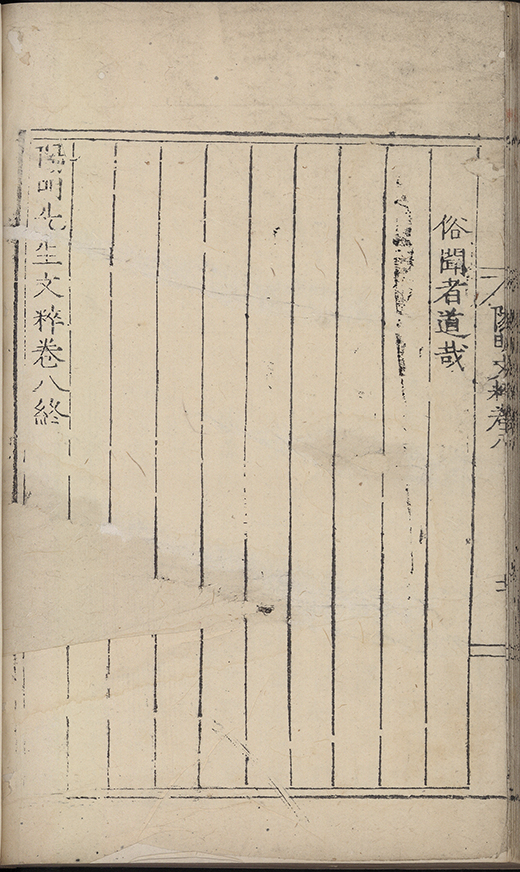 陽明文粹卷八
俗聞者道哉
陽明先生文粹卷八終